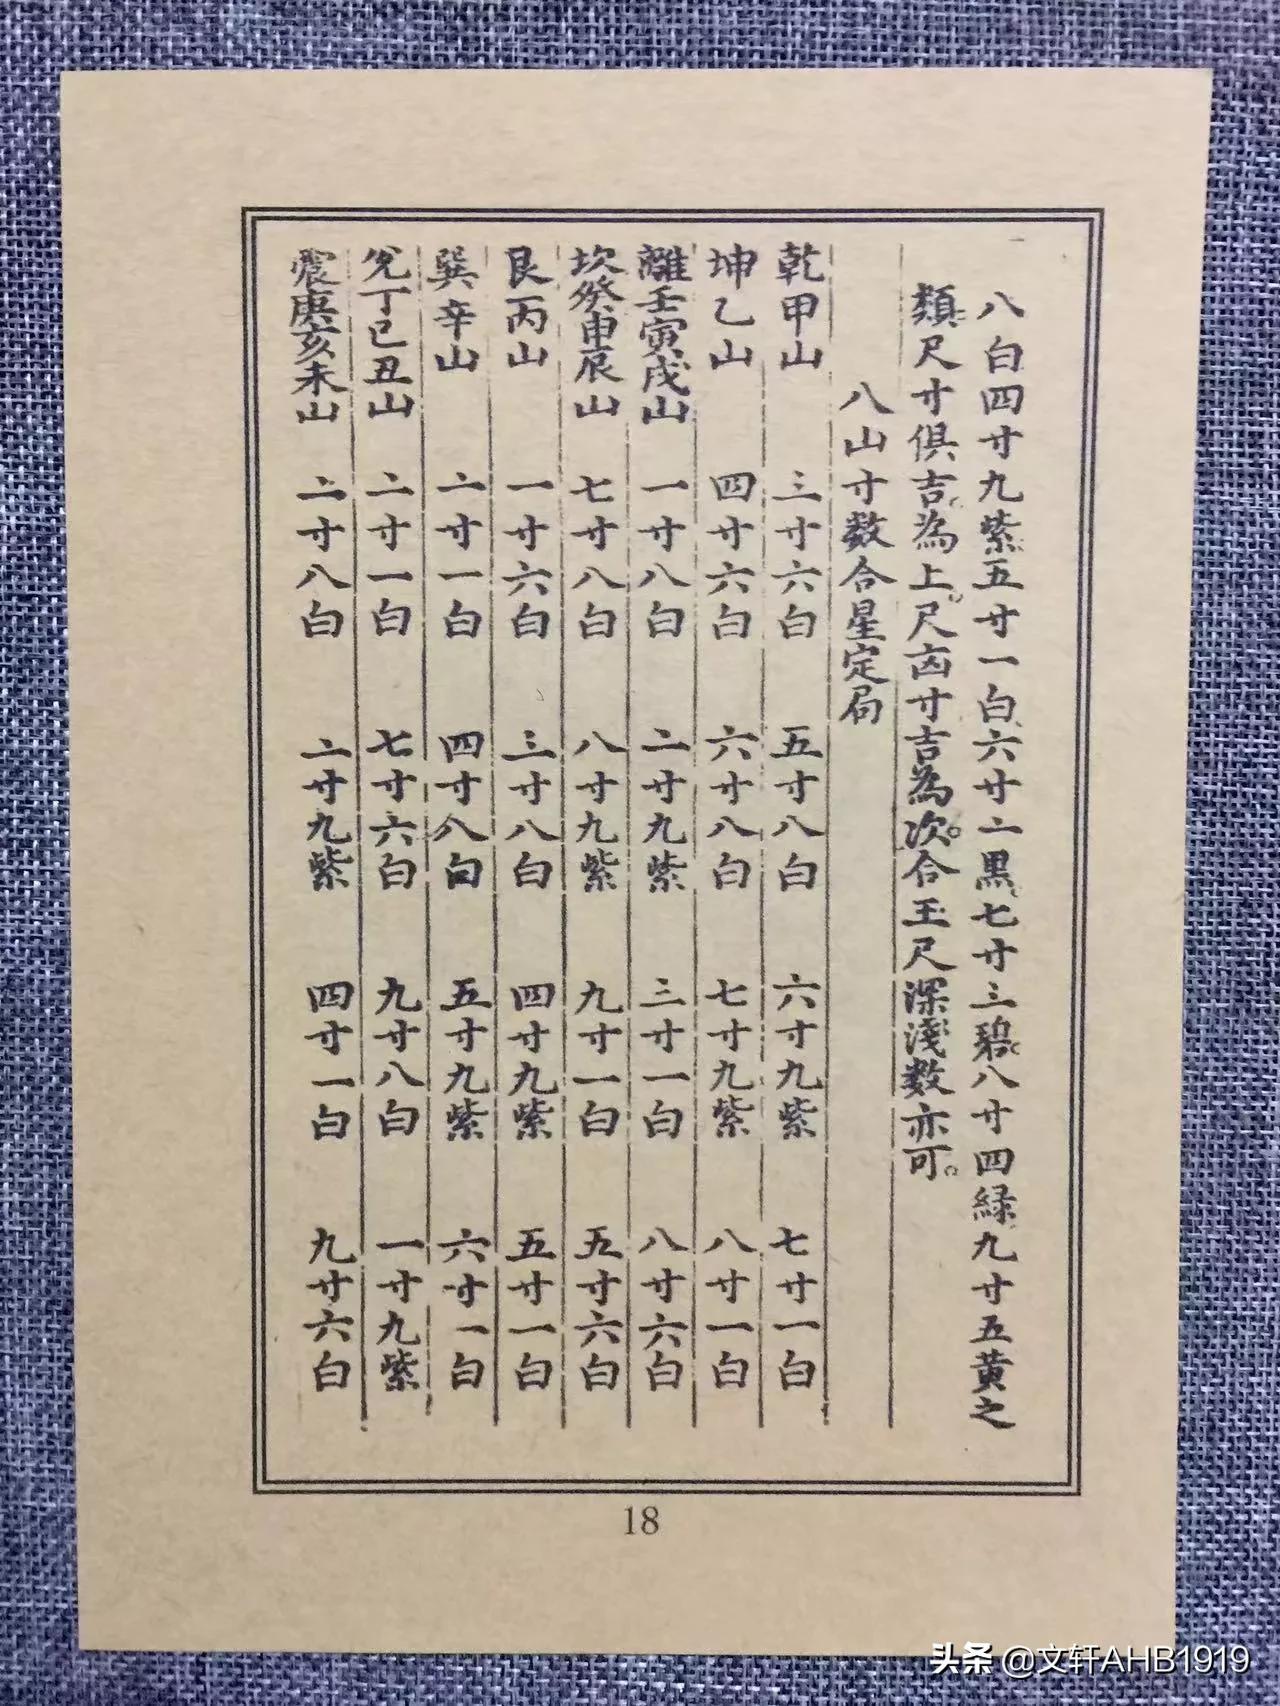 八白四寸九紫五寸一白六寸二黑七寸三碧八寸四緑九寸五黄之
類尺寸俱吉為上尺凶寸吉為次。合玉尺深淺数亦可。
八山寸数合星定局
乾甲山 三寸六白 五寸八白 六寸九紫 七寸一白
坤乙山 四寸六白 六寸八白 七寸九紫 八寸一白
離壬寅戌山 一寸八白 二寸九紫 三寸一白 八寸六白
坎癸申辰山 七寸八白 八寸九紫 九寸一白 五寸六白
艮丙山 一寸六白 三寸八白 四寸九紫 五寸一白
巽辛山 二寸一白 四寸八白 五寸九紫 六寸一白
兌丁巳丑山 二寸一白 七寸六白 九寸八白 一寸九紫
震庚亥未山 二寸八白 二寸九紫 四寸一白 九寸六白
18
头条 @文轩AHB1919